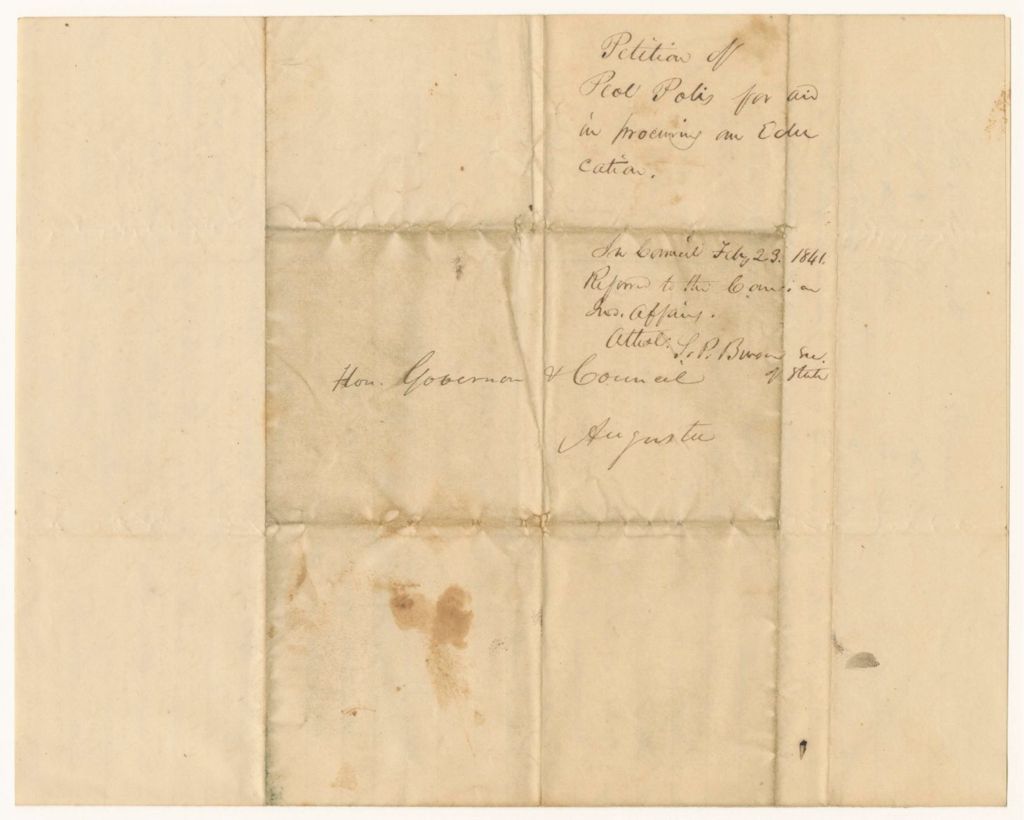 Petition of
Peol Polis for aid
in procuring an Edu
cation.
In Council Feby 23. 1841.
Referred to the Com. on
Ind. Affairs.
Attest:
of State
Hon. Governor & Council
Augusta